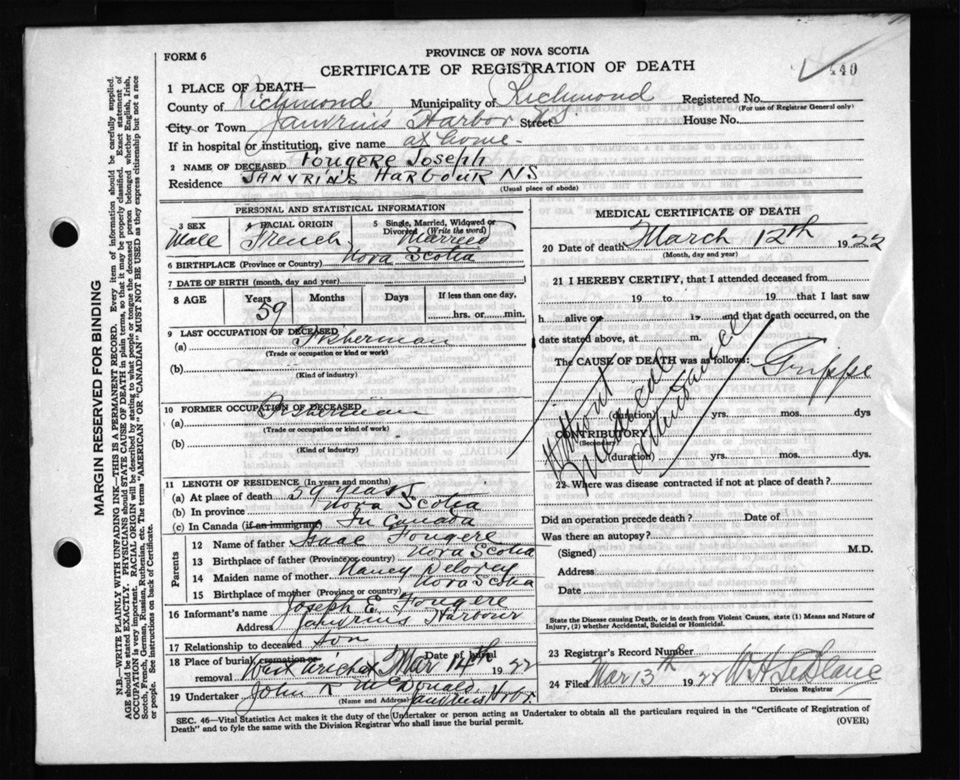 FORM 6
PROVINCE OF NOVA SCOTIA
CERTIFICATE OF REGISTRATION OF DEATH
440
1 PLACE OF DEATH—
County of Richmond Municipality of Richmond Registered No.
(For use of Registrar General only)
City or Town Janvrins Harbor NS Street House No.
If in hospital or institution, give name at home-
2 NAME OF DECEASED Fougere Joseph
Residence JANVRIN'S HARBOUR NS
(Usual place of abode)
PERSONAL AND STATISTICAL INFORMATION
3 SEX 4 RACIAL ORIGIN 5 Single, Married, Widowed or Divorced (Write the word)
Male French Married
6 BIRTHPLACE (Province or Country) Nova Scotia
7 DATE OF BIRTH (month, day and year)
8 AGE Years Months Days If less than one day,
59 hrs. or min.
9 LAST OCCUPATION OF DECEASED
(a) Fisherman
(Trade or occupation or kind or work)
(b)
(Kind of industry)
10 FORMER OCCUPATION OF DECEASED
(a) Fisherman
(Trade or occupation or kind of work)
(b)
(Kind of industry)
11 LENGTH OF RESIDENCE (In years and months)
(a) At place of death 59 years
(b) In province Nova Scotia
(c) In Canada (if an immigrant) In Canada
Parents
12 Name of father Isaac Fougere
13 Birthplace of father (Province or country) Nova Scotia
14 Maiden name of mother Nancy Delorey
15 Birthplace of mother (Province or country) Nova Scotia
16 Informant's name Joseph E. Fougere
Address Janvrins Harbour
17 Relationship to deceased Son
18 Place of burial cremation or removal West Arichat Date of burial Mar 14th 1922
19 Undertaker John McDonald Janvrins Hrbr.
(Name and Address)
MEDICAL CERTIFICATE OF DEATH
20 Date of death March 12th 1922
(Month, day and year)
21 I HEREBY CERTIFY, that I attended deceased from
19 to 19 that I last saw
h alive on 19 and that death occurred, on
date stated above, at m.
The CAUSE OF DEATH was as follows: Grippe
Without Medical attendance
(duration) yrs. mos. dys
CONTRIBUTORY
(Secondary)
(duration) yrs. mos. dys
22 Where was disease contracted if not at place of death?
Did an operation precede death? Date of
Was there an autopsy?
(Signed) M.D.
Address
Date
State the Disease causing Death, or in death from Violent Causes, state (1) Means and Nature of
Injury, (2) whether Accidental, Suicidal or Homicidal.
23 Registrar's Record Number
24 Filed Mar 13th 1922 W H LeBlanc
Division Registrar
SEC. 46—Vital Statistics Act makes it the duty of the Undertaker or person acting as Undertaker to obtain all the particulars required in the "Certificate of Registration of
Death" and to fyle the same with the Division Registrar who shall issue the burial permit.
(OVER)
MARGIN RESERVED FOR BINDING
N.B.—WRITE PLAINLY WITH UNFADING INK—THIS IS A PERMANENT RECORD. Every item of information should be carefully supplied.
AGE should be stated EXACTLY. PHYSICIANS should STATE CAUSE OF DEATH in plain terms, so that it may be properly classified. Exact statement of
OCCUPATION is very important. RACIAL ORIGIN will be described by stating to what people or tongue the deceased person belonged whether English, Irish,
Scotch, French, German, Russian, Ruthenian, etc. The terms "AMERICAN" OR "CANADIAN" MUST NOT BE USED as they express citizenship but not a race
or people. See instructions on back of Certificate.